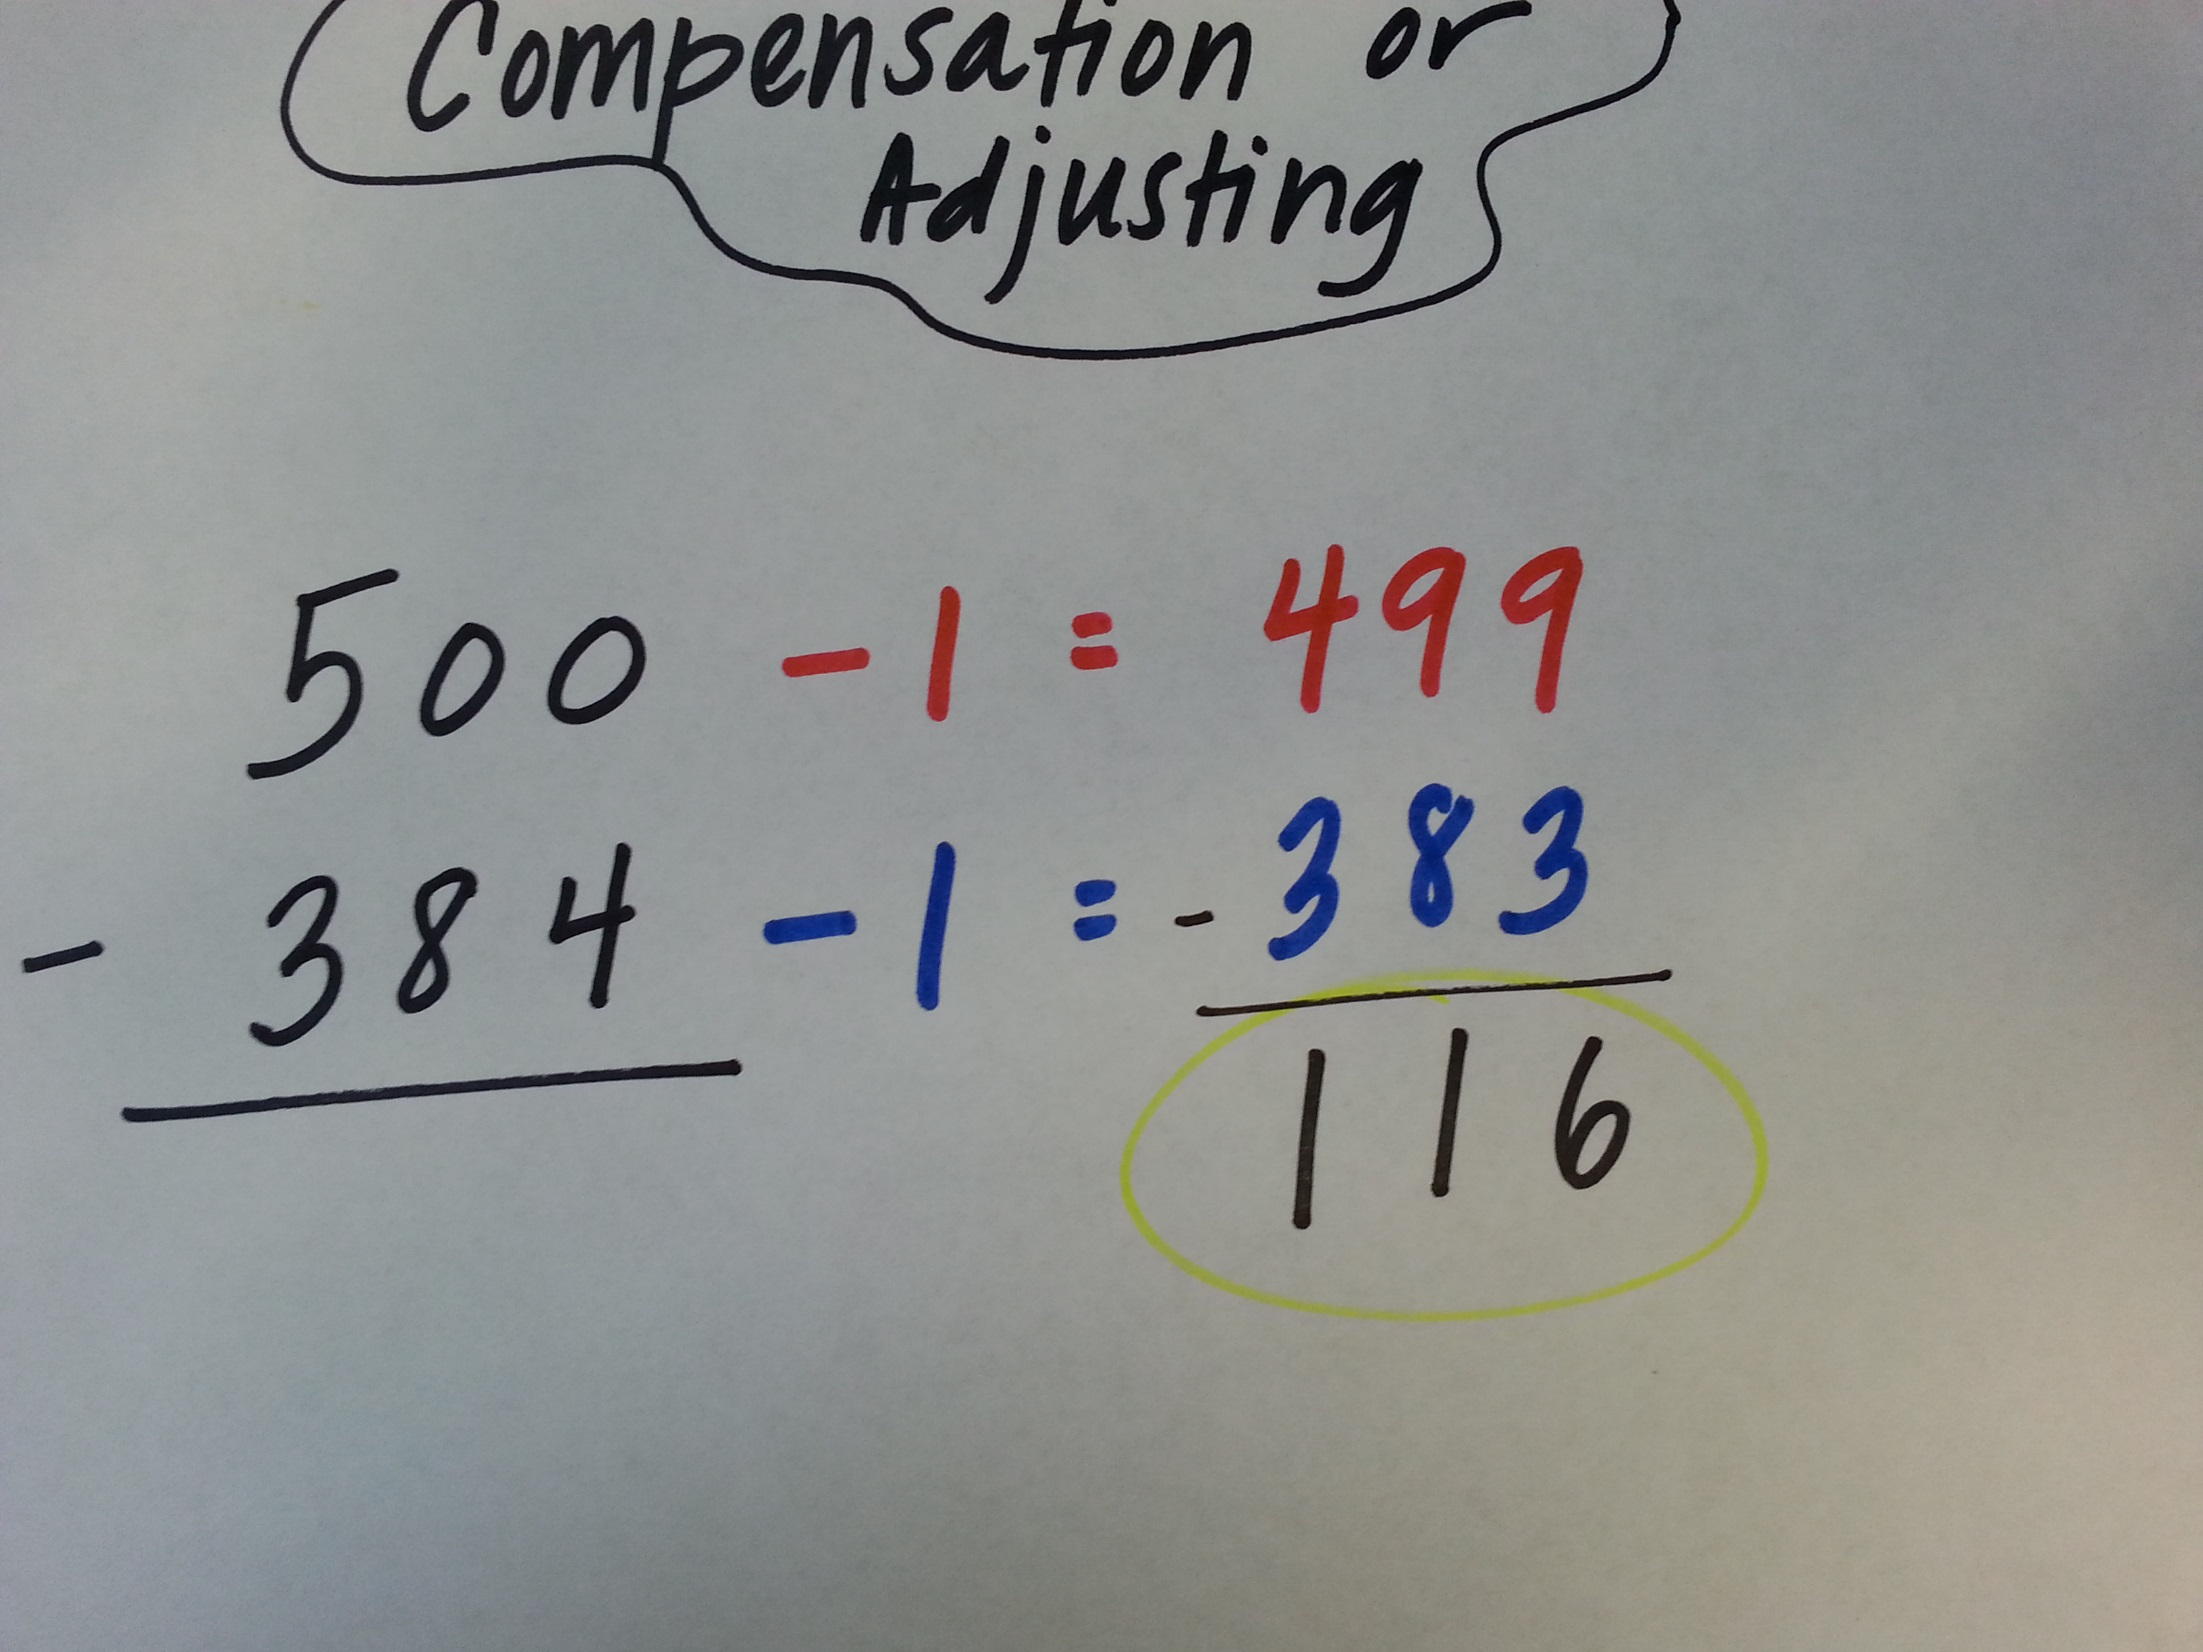 Compensation or
Adjusting
500 - 1 = 499
- 384 - 1 = - 383
116